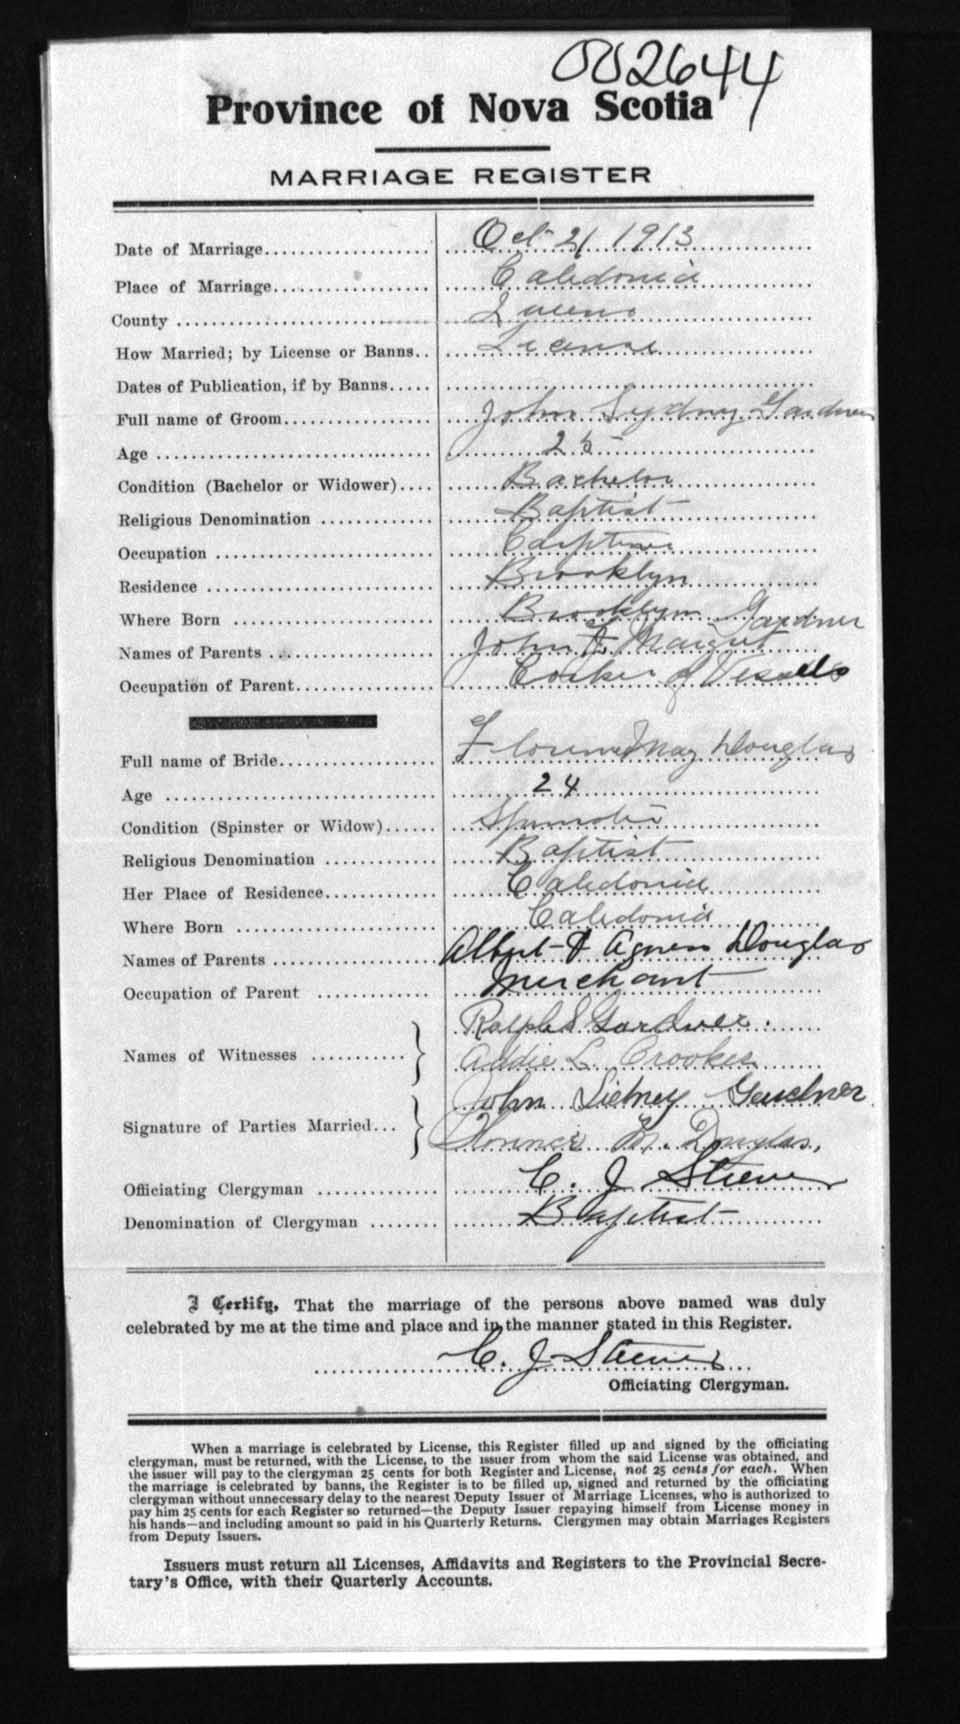 002644
Province of Nova Scotia
MARRIAGE REGISTER
Date of Marriage Oct 21 1913
Place of Marriage Caledonia
County Queens
How Married; by License or Banns License
Dates of Publication, if by Banns
Full name of Groom John Sydney Gardner
Age 25
Condition (Bachelor or Widower) Bachelor
Religious Denomination Baptist
Occupation Carpenter
Residence Brooklyn
Where Born Brooklyn
Names of Parents John & Margret Gardner
Occupation of Parent Corker of Vessels
Full name of Bride Florence May Douglas
Age 24
Condition (Spinster or Widow) Spinster
Religious Denomination Baptist
Her Place of Residence Caledonia
Where Born Caledonia
Names of Parents Albert & Agnes Douglas
Occupation of Parent Merchant
Names of Witnesses Ralph S Gardner.
Addie L. Crooker
Signature of Parties Married John Sidney Gardner
Florence M. Douglas,
Officiating Clergyman C. J. Steeves
Denomination of Clergyman Baptist
I Certify, That the marriage of the persons above named was duly
celebrated by me at the time and place and in the manner stated in this Register.
C. J. Steeves
Officiating Clergyman.
When a marriage is celebrated by License, this Register filled up and signed by the officiating
clergyman, must be returned, with the License, to the issuer from whom the said License was obtained, and
the issuer will pay to the clergyman 25 cents for both Register and License, not 25 cents for each. When
the marriage is celebrated by banns, the Register is to be filled up, signed and returned by the officiating
clergyman without unnecessary delay to the nearest Deputy Issuer of Marriage Licenses, who is authorized to
pay him 25 cents for each Register so returned—the Deputy Issuer repaying himself from License money in
his hands—and including amount so paid in his Quarterly Returns. Clergymen may obtain Marriages Registers
from Deputy Issuers.
Issuers must return all Licenses, Affidavits and Registers to the Provincial Secre-
tary's Office, with their Quarterly Accounts.